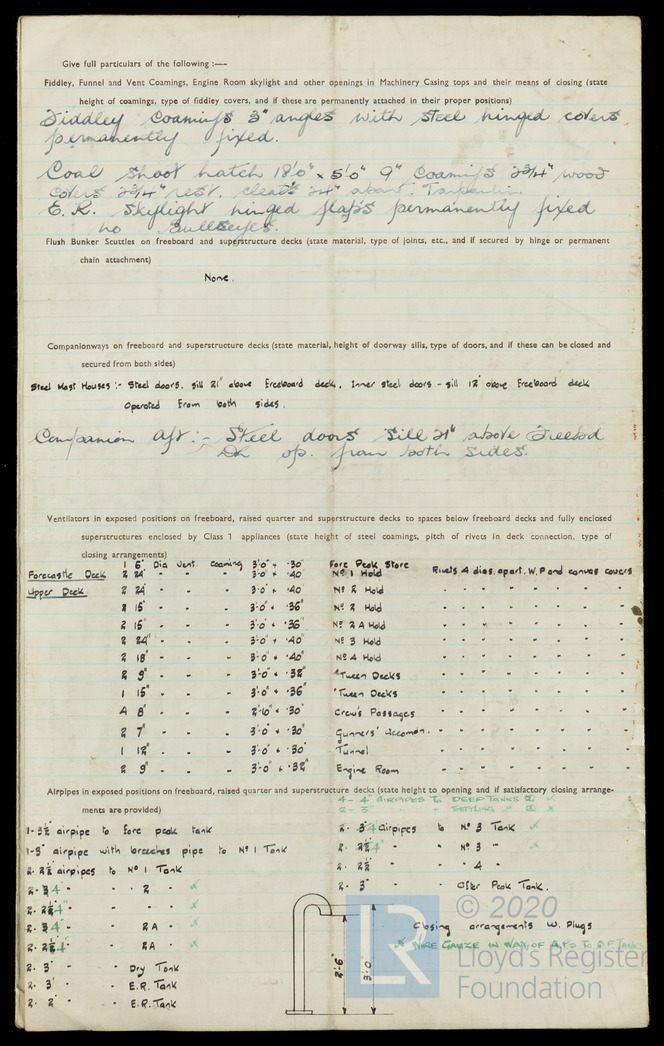 Give full particulars of the following :—
Fiddley, Funnel and Vent Coamings, Engine Room skylight and other openings in Machinery Casing tops and their means of closing (state
height of coamings, type of fiddley covers, and if these are permanently attached in their proper positions)
Fiddley Coamings 3" angles with steel hinged covers
permanently fixed.
Coal shoot hatch 18'0" x 5'0" 9" Coamings 2¾" wood
covers 2¾" rest. cleats 24" apart. Tarpaulin
E.R. Skylight hinged flaps permanently fixed
no Bullseyes.
Flush Bunker Scuttles on freeboard and superstructure decks (state material, type of joints, etc., and if secured by hinge or permanent
chain attachment)
None.
Companionways on freeboard and superstructure decks (state material, height of doorway sills, type of doors, and if these can be closed and
secured from both sides)
Steel Mast Houses :- Steel doors. sill 21" above Freeboard deck. Inner steel doors - sill 12" above Freeboard deck
Operated From both sides.
Companion aft :- Steel doors Sill 21" above Freebod
Dk op. from both sides.
Ventilators in exposed positions on freeboard, raised quarter and superstructure decks to spaces below freeboard decks and fully enclosed
superstructures enclosed by Class 1 appliances (state height of steel coamings, pitch of rivets in deck connection, type of
closing arrangements)
1 6" Dia Vent. coaming 3'0" x .30" Fore Peak Store
Forecastle Deck 2 24" " " 3'0" x .40 No 1 Hold Rivets 4 dias. apart. W.P and canvas covers
Upper Deck 2 24 " " 3'0" x .40 No 2 Hold " " " " " " "
2 15" " " 3'0" x .36" No 2 Hold " " " " " " "
2 15 " " 3'0" x .36" No 2A Hold " " " " " " "
2 24" " " 3'0" x .40" No 3 Hold " " " " " " "
2 18" " " 3'0" x .40" No 4 Hold " " " " " " "
2 9" " " 3'0" x .32" 'Tween Decks " " " " " " "
1 15" " " 3'0" x .36" 'Tween Decks " " " " " " "
4 8" " " 2'10" x .30" Crew's Passages " " " " " " "
2 7" " " 3'0" x .30" Gunners' Accomon. " " " " " " "
1 12" " " 3'0" x .30" Tunnel " " " " " " "
2 9" " " 3'0" x .32" Engine Room " " " " " " "
Airpipes in exposed positions on freeboard, raised quarter and superstructure decks (state height to opening and if satisfactory closing arrange-
ments are provided)
4 - 4" AIRPIPES TO DEEP TANKS
2 - 3" " " SETTLING "
1- 3½ airpipe to Fore peak tank
1- 3" airpipe with breeches pipe to No 1 Tank
2- 2½ airpipes to No 1 Tank
2- 4" " " 2 "
2- 4" " " "
2- 4" " " 2A "
2- 4" " " 2A "
2- 3" " " Dry Tank
2- 3" " " E.R. Tank
2- 2" " " E.R. Tank
2- 4 Airpipes to No 3 Tank
2- 4" " " No 3 "
2- 2½ " " " 4 "
2- 3" " " After Peak Tank.
2'-6"
3'-0
Closing arrangements W. Plugs
WIRE GAUZE IN WAY OF A.P'S TO O.F. TANKS
LR
© 2020
Lloyd's Register
Foundation